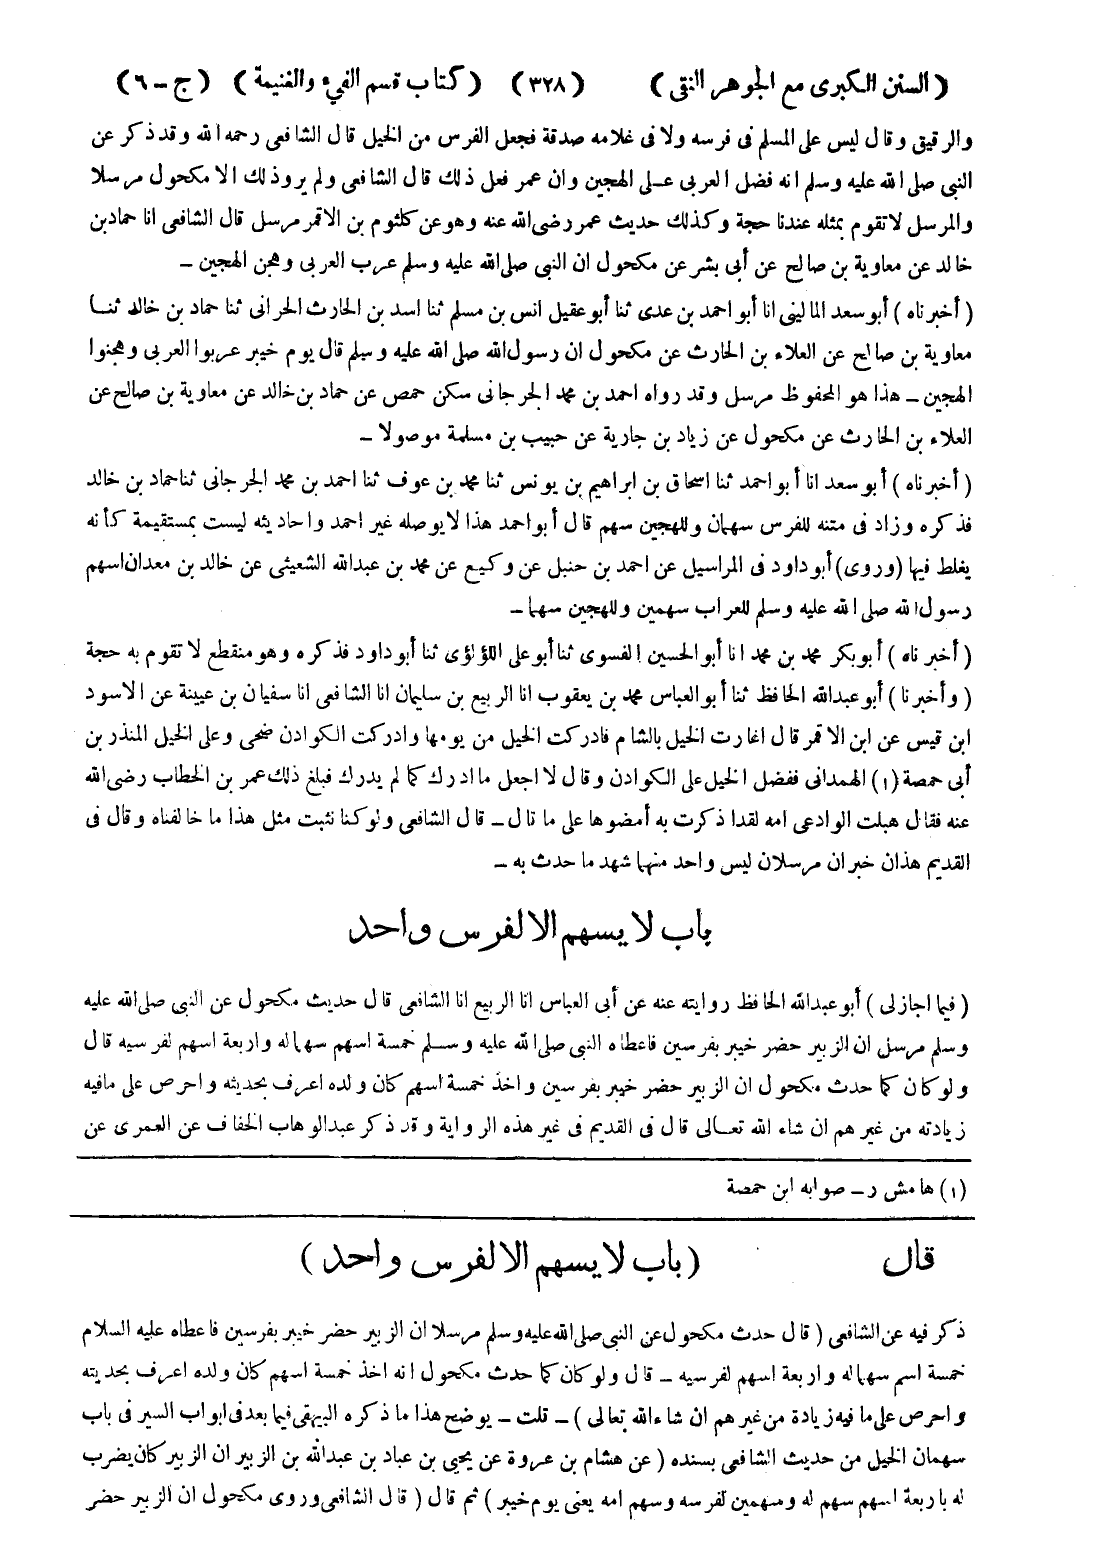 ( السنن الكبرى مع الجوهر النقى ) ( ٣٢٨ ) ( كتاب قسم الفىء والغنيمة ) ( ج - ٦ )
والرقيق وقال ليس على المسلم فى فرسه ولا فى غلامه صدقة فجعل الفرس من الخيل قال الشافعى رحمه الله وقد ذكر عن
النبى صلى الله عليه وسلم انه فضل العربى على الهجين وان عمر فعل ذلك قال الشافعى ولم يروذلك الا مكحول مرسلا
والمرسل لا تقوم بمثله عندنا حجة وكذلك حديث عمر رضى الله عنه وهوعن كلثوم بن الاقمر مرسل قال الشافعى انا حماد بن
خالد عن معاوية بن صالح عن أبى بشر عن مكحول ان النبى صلى الله عليه وسلم عرب العربى وهجن الهجين -
( أخبرناه ) أبو سعد المالينى انا أبو احمد بن عدى ثنا أبو عقيل انس بن مسلم ثنا اسد بن الحارث الحرانى ثنا حماد بن خالد ثنا
معاوية بن صالح عن العلاء بن الحارث عن مكحول ان رسول الله صلى الله عليه وسلم قال يوم خيبر عربوا العربى وهجنوا
الهجين - هذا هو المحفوظ مرسل وقد رواه احمد بن محمد الجرجانى سكن حمص عن حماد بن خالد عن معاوية بن صالح عن
العلاء بن الحارث عن مكحول عن زياد بن جارية عن حبيب بن مسلمة موصولا -
( أخبرناه ) أبو سعد انا أبو احمد ثنا اسحاق بن ابراهيم بن يونس ثنا محمد بن عوف ثنا احمد بن محمد الجرجانى ثنا حماد بن خالد
فذكره وزاد فى متنه للفرس سهمان وللهجين سهم قال أبو احمد هذا لا يوصله غير احمد واحاديثه ليست بمستقيمة كأنه
يغلط فيها ( وروى ) أبو داود فى المراسيل عن احمد بن حنبل عن وكيع عن محمد بن عبدالله الشعيثى عن خالد بن معدان اسهم
رسول الله صلى الله عليه وسلم للعراب سهمين وللهجين سهما -
( أخبرناه ) أبوبكر محمد بن محمد انا أبو الحسين الفسوى ثنا أبو على اللؤلؤى ثنا أبو داود فذكره وهو منقطع لا تقوم به حجة
( وأخبرنا ) أبو عبدالله الحافظ ثنا أبو العباس محمد بن يعقوب انا الربيع بن سليمان انا الشافعى انا سفيان بن عيينة عن الاسود
ابن قيس عن ابن الاقمر قال اغارت الخيل بالشام فادركت الخيل من يومها وادركت الكوادن ضحى وعلى الخيل المنذر بن
أبى حمصة (١) الهمدانى ففضل الخيل على الكوادن وقال لا اجعل ما ادرك كما لم يدرك فبلغ ذلك عمر بن الخطاب رضى الله
عنه فقال هبلت الوادعى امه لقد اذكرت به أمضوها على ما قال - قال الشافعى ولو كنا نثبت مثل هذا ما خالفناه وقال فى
القديم هذان خبران مرسلان ليس واحد منهما شهد ما حدث به -
باب لا يسهم الا لفرس واحد
( فيما اجازلى ) أبو عبدالله الحافظ روايته عنه عن أبى العباس انا الربيع انا الشافعى قال حديث مكحول عن النبى صلى الله عليه
وسلم مرسل ان الزبير حضر خيبر بفرسين فاعطاه النبى صلى الله عليه وسلم خمسة اسهم سهما له واربعة اسهم لفرسيه قال
ولو كان كما حدث مكحول ان الزبير حضر خيبر بفرسين واخذ خمسة اسهم كان ولده اعرف بحديثه واحرص على ما فيه
زيادته من غيرهم ان شاء الله تعالى قال فى القديم فى غير هذه الرواية وقد ذكر عبدالوهاب الخفاف عن العمرى عن
(١) هامش ر - صوابه ابن حمصة
قال ( باب لا يسهم الا لفرس واحد )
ذكر فيه عن الشافعى ( قال حدث مكحول عن النبى صلى الله عليه وسلم مرسلا ان الزبير حضر خيبر بفرسين فاعطاه عليه السلام
خمسة اسم سهما له واربعة اسهم لفرسيه - قال ولو كان كما حدث مكحول انه اخذ خمسة اسهم كان ولده اعرف بحديثه
واحرص على ما فيه زيادة من غيرهم ان شاء الله تعالى ) - قلت - يوضح هذا ما ذكره البيهقى فيما بعد فى ابواب السير فى باب
سهمان الخيل من حديث الشافعى بسنده ( عن هشام بن عروة عن يحيى بن عباد بن عبدالله بن الزبير ان الزبير كان يضرب
له باربعة اسهم سهم له وسهمين لفرسه وسهم امه يعنى يوم خيبر ) ثم قال ( قال الشافعى وروى مكحول ان الزبير حضر